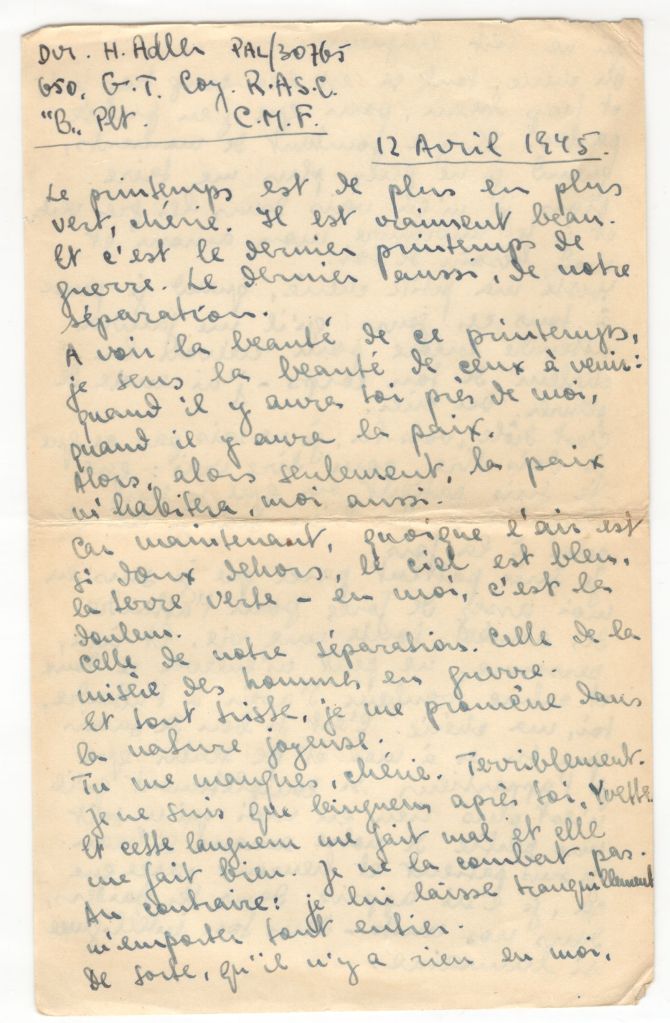 Dvr. H. Adler PAL/30765
650, G.T. Coy. R.A.S.C.
"B" Plt C.M.F.
12 Avril 1945.
Le printemps est de plus en plus
vert, chérie. Il est vraiment beau.
Et c'est le dernier printemps de
guerre. Le dernier aussi, de notre
séparation.
A voir la beauté de ce printemps,
je sens la beauté de ceux à venir:
quand il y aura toi près de moi,
quand il y aura la paix.
Alors, alors seulement, la paix
m'habitera, moi aussi.
Car maintenant, quoique l'air est
si doux dehors, le ciel est bleu,
la terre verte – en moi, c'est la
douleur.
Celle de notre séparation. Celle de la
misère des hommes en guerre.
Et tout triste, je me promène dans
la nature joyeuse.
Tu me manques, chérie. Terriblement.
Je ne suis que langueur après toi, Yvette.
Et cette langueur me fait mal et elle
me fait bien. Je ne la combat pas.
Au contraire: je lui laisse tranquillement
m'emporter tout entier.
De sorte, qu'il n'y a rien en moi,